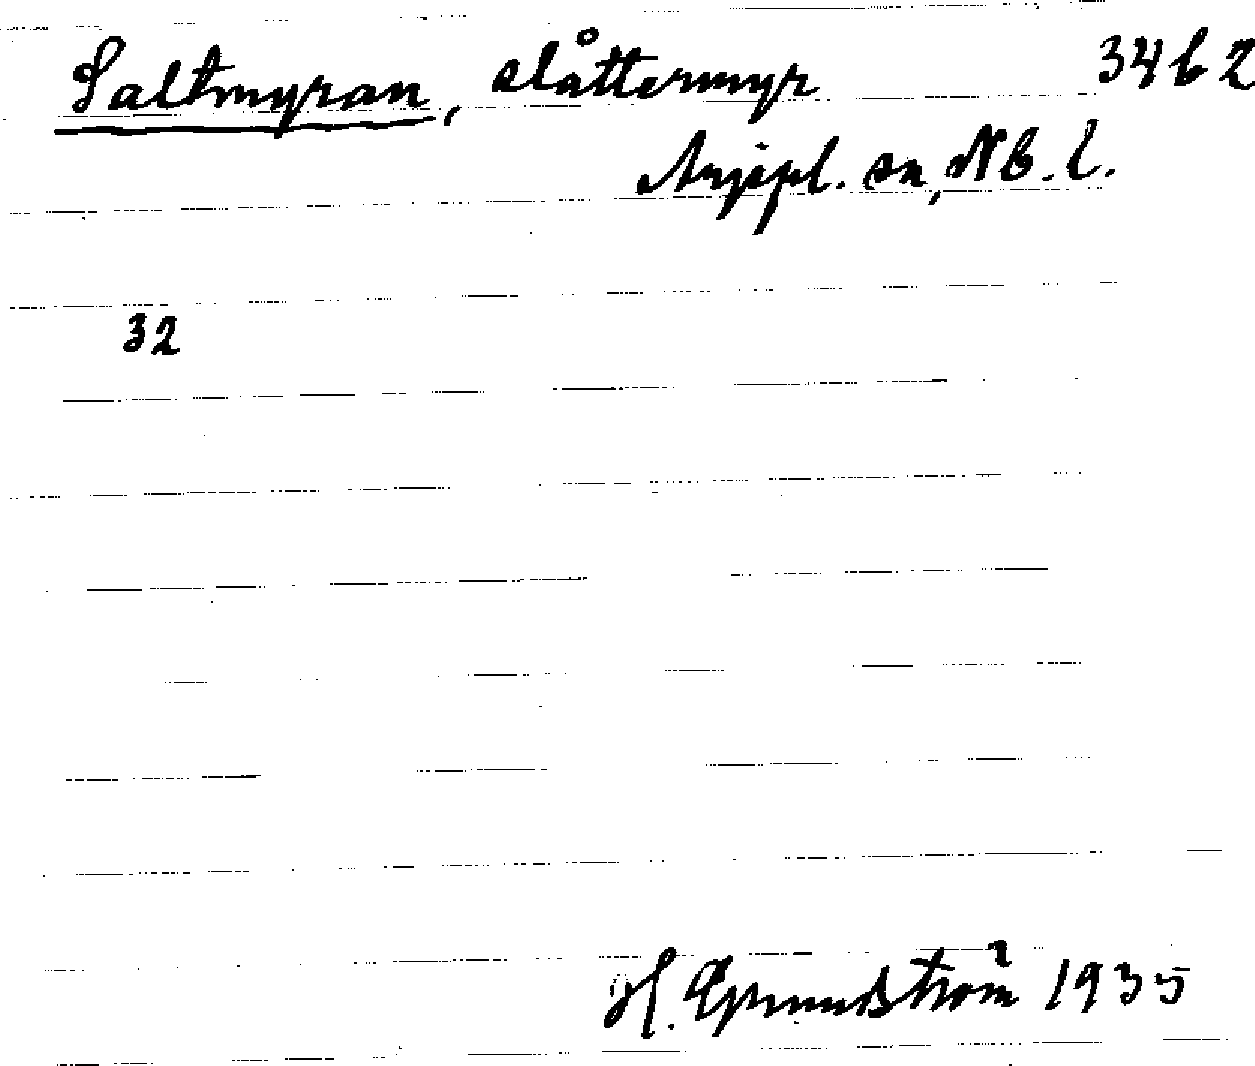 Saltmyran, slåttermyr 3462
Arjepl. sn, Nb. l.
32
H. Grundström 1935